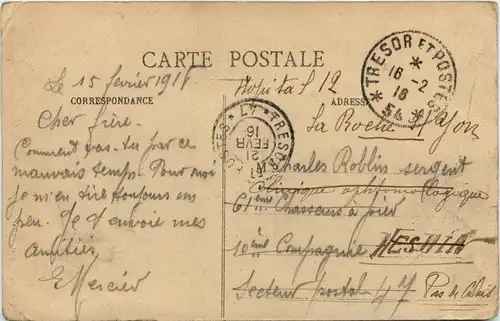 CARTE POSTALE
Le 15 fevrier 1916
Hopital 12
CORRESPONDANCE
ADRESSE
TRESOR ET POSTES
16 - 2
16
54
TRESOR
POSTES
21
FEVR
16
Cher frère.
La Roche / Yon
Comment vas-tu par ce
Charles Roblin sergent
mauvais temps. Pour moi
Clinique ophtmologique
je m'en tire toujours un
61ème Chasseurs à pied
peu. Je t'envoie mes
10ème Compagnie HESDIN
Amitiés
E Mercier
Secteur postal 47 Pas de Calais